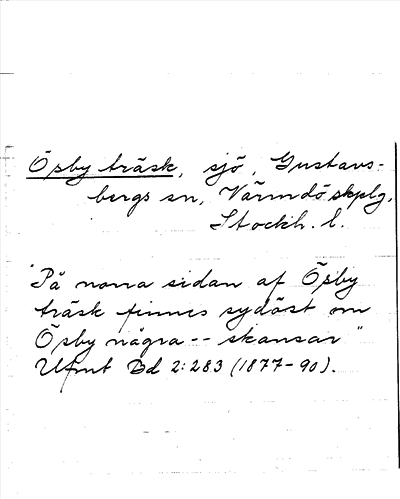 Ösby träsk, sjö, Gustavs-
bergs sn, Värmdö skplg,
Stockh. l.
"På norra sidan af Ösby
träsk finnes sydöst om
Ösby några -- skansar"
Ufmt Bd 2:283 (1877-90).